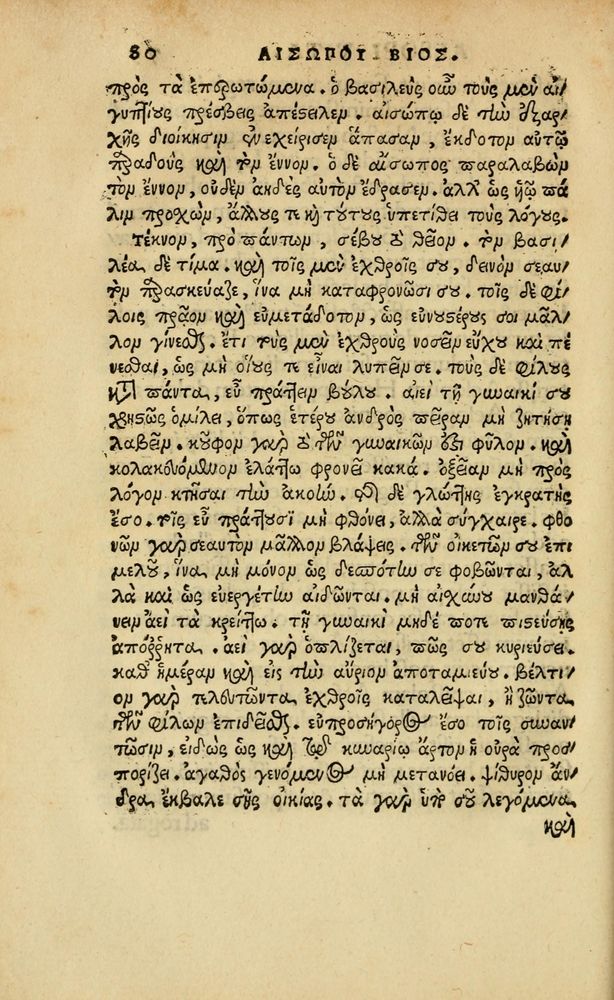 80 ΑΙΣΩΠΟΥ ΒΙΟΣ.
πρὸς τὰ ἐπερωτώμενα. ὁ βασιλεὺς οὖν τοὺς μὲν αἰ/
γυπτίους πρέσβεις ἀπέστειλεν. αἰσώπῳ δὲ τὴν ἐξαρ/
χῆς διοίκησιν ἐνεχείρισεν ἅπασαν, ἔκδοτον αὐτῷ
παραδοὺς καὶ τὸν ἔννον. ὁ δὲ αἴσωπος παραλαβὼν
τὸν ἔννον, οὐδὲν ἀηδὲς αὐτὸν ἔδρασεν. ἀλλ' ὡς υἱῷ πά
λιν προσχὼν, ἄλλους τε καὶ τούτους ὑπετίθει τοὺς λόγους.
Τέκνον, πρὸ πάντων, σέβου τὸ θεῖον. τὸν βασι/
λέα δὲ τίμα. καὶ τοῖς μὲν ἐχθροῖς σου, δεινὸν σεαυ/
τὸν παρασκεύαζε, ἵνα μὴ καταφρονῶσί σου. τοῖς δὲ φί/
λοις πρᾶον καὶ εὐμετάδοτον, ὡς εὐνουστέρους σοι μᾶλ/
λον γίνεσθαι. ἔτι τοὺς μὲν ἐχθροὺς νοσεῖν εὔχου καὶ πέ
νεσθαι, ὡς μὴ οἵους τε εἶναι λυπεῖν σε. τοὺς δὲ φίλους
κατὰ πάντα, εὖ πράττειν βούλου. αἰεὶ τῇ γυναικί σου
χρηστῶς ὁμίλει, ὅπως ἑτέρου ἀνδρὸς πεῖραν μὴ ζητήσῃ
λαβεῖν. κοῦφον γὰρ τὸ τῶν γυναικῶν ἐστι φῦλον. καὶ
κολακευόμενον ἐλάττω φρονεῖ κακά. ὀξεῖαν μὴ πρὸς
λόγον κτῆσαι τὴν ἀκοήν. τῆς δὲ γλώττης ἐγκρατὴς
ἔσο. τοῖς εὖ πράττουσι μὴ φθόνει, ἀλλὰ σύγχαιρε. φθο
νῶν γὰρ σεαυτὸν μᾶλλον βλάψεις. τῶν οἰκετῶν σου ἐπι
μελοῦ, ἵνα μὴ μόνον ὡς δεσπότην σε φοβῶνται, ἀλ
λὰ καὶ ὡς εὐεργέτην αἰδῶνται. μὴ αἰσχύνου μανθά/
νειν ἀεὶ τὰ κρείττω. τῇ γυναικὶ μηδέ ποτε πιστεύσῃς
ἀπόῤῥητα. ἀεὶ γὰρ ὁπλίζεται, πῶς σου κυριεύσει.
καθ' ἡμέραν καὶ εἰς τὴν αὔριον ἀποταμιεύου. βέλτι/
ον γὰρ τελευτῶντα ἐχθροῖς καταλεῖψαι, ἢ ζῶντα
τῶν φίλων ἐπιδεῖσθαι. εὐπροσήγορος ἔσο τοῖς συναν/
τῶσιν, εἰδὼς ὡς καὶ τῷ κυναρίῳ ἄρτον ἡ οὐρὰ προσ/
πορίζει. ἀγαθὸς γενόμενος μὴ μετανόει. ψίθυρον ἄν/
δρα ἔκβαλε σῆς οἰκίας. τὰ γὰρ ὑπὸ σοῦ λεγόμενα
καὶ